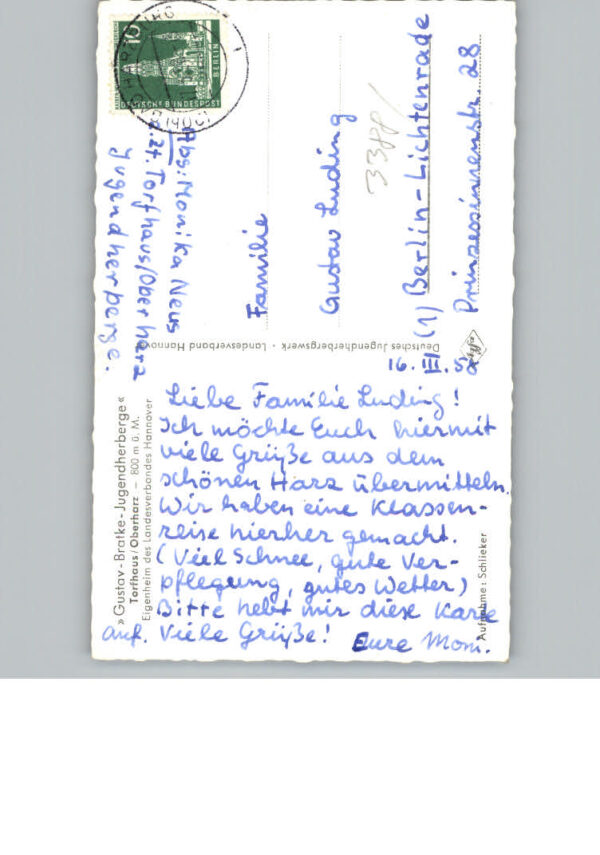 16. III. 59
Liebe Familie Luding!
Ich möchte Euch hiermit
viele Grüße aus dem
schönen Harz übermitteln.
Wir haben eine Klassen-
reise hierher gemacht.
(Viel Schnee, gute Ver-
pflegung, gutes Wetter)
Bitte hebt mir diese Karte
auf. Viele Grüße! Eure Moni.
»Gustav-Bratke-Jugendherberge«
Torfhaus/Oberharz — 800 m ü. M.
Eigenheim des Landesverbandes Hannover
Aufnahme: Schlieker
Deutsches Jugendherbergswerk · Landesverband Hannover
Abs: Monika Neus
z. Zt. Torfhaus/Oberharz
Jugendherberge.
Familie
Gustav Luding
3388/
(1) Berlin-Lichtenrade
Prinzessinnenstr. 28
10
BERLIN
DEUTSCHE BUNDESPOST